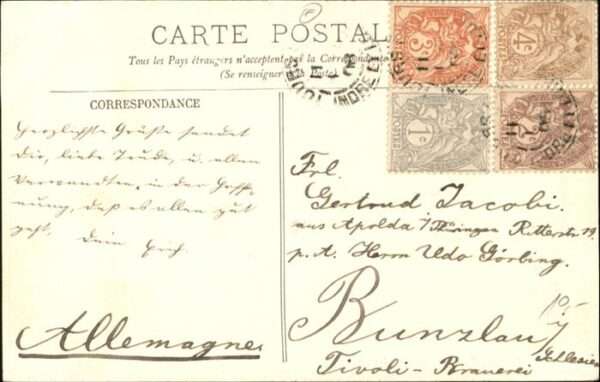 CARTE POSTALE
Tous les Pays étrangers n'acceptent pas la Correspondance
(Se renseigner à la Poste)
CORRESPONDANCE
Herzlichste Grüße sendet
Dir, liebe Trude, u. allen
Verwandten, in der Hoff-
nung, daß es allen gut
geht. Dein
Allemagne.
3c
4c
1c
TOURS
INDRE
Frl.
Gertrud Jacobi.
aus Apolda i/Thüringen Ritterstr 19
p. A. Herrn Udo Görbing.
Bunzlau /
Schlesien
Tivoli-Brauerei
10,-